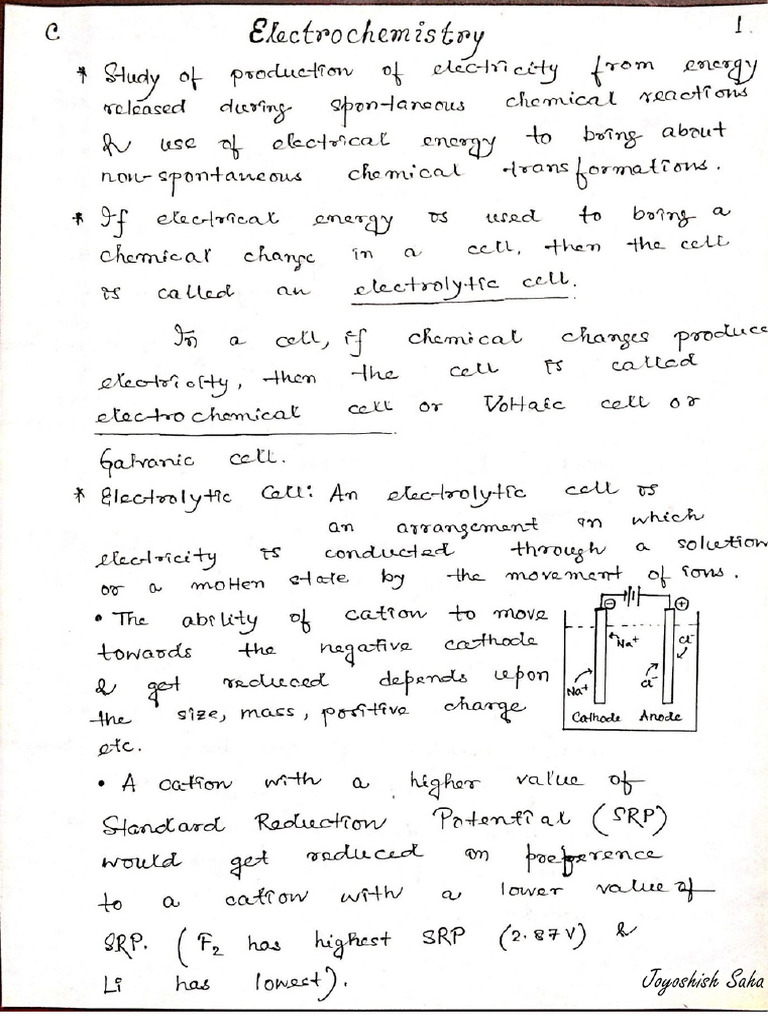 C Electrochemistry 1.
* Study of production of electricity from energy
released during spontaneous chemical reactions
& use of electrical energy to bring about
non-spontaneous chemical transformations.
* If electrical energy is used to bring a
chemical change in a cell, then the cell
is called an electrolytic cell.
In a cell, if chemical changes produce
electricity, then the cell is called
electrochemical cell or Voltaic cell or
Galvanic cell.
* Electrolytic Cell: An electrolytic cell is
an arrangement in which
electricity is conducted through a solution
or a molten state by the movement of ions.
• The ability of cation to move
towards the negative cathode
& get reduced depends upon
the size, mass, positive charge
etc.
⊖ ⊕
Na⁺ Cl⁻
Na⁺ Cl⁻
Cathode Anode
• A cation with a higher value of
Standard Reduction Potential (SRP)
would get reduced in preference
to a cation with a lower value of
SRP. (F₂ has highest SRP (2.87V) &
Li has lowest).
Joyoshish Saha